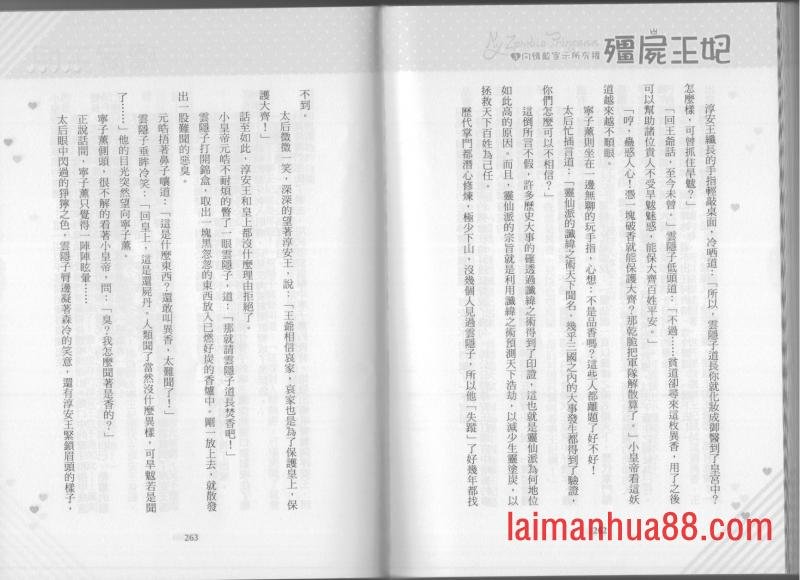 My Zombie Princess
殭屍王妃
淳安王纖長的手指輕敲桌面，冷哂道：「所以，雲隱子道長你就化妝成御醫到了皇宮中？
怎麼樣，可曾抓住旱魃？」
「回王爺話，至今未曾。」雲隱子低頭道：「不過……貧道卻尋來這枚異香，用了之後
可以幫助諸位貴人不受旱魃魅惑，能保大齊百姓平安。」
「哼，蠱惑人心！憑一塊破香就能保護大齊？那乾脆把軍隊解散算了。」小皇帝看這妖
道越來越不順眼。
寧子薰則坐在一邊無聊的玩手指，心想：不是品香嗎？這些人都離題了好不好！
太后忙插言道：「靈仙派的讖緯之術天下聞名，幾乎三國之內的大事發生都得到了驗證，
你們怎麼可以不相信？」
這倒所言不假，許多歷史大事的確透過讖緯之術得到了印證，這也就是靈仙派為何地位
如此高的原因。而且，靈仙派的宗旨就是利用讖緯之術預測天下浩劫，以減少生靈塗炭，以
拯救天下百姓為己任。
歷代掌門都潛心修煉，極少下山，沒幾個人見過雲隱子，所以他「失蹤」了好幾年都找
262
laimanhua88.com
不到。
太后微微一笑，深深的望著淳安王，說：「王爺相信哀家，哀家也是為了保護皇上，保
護大齊！」
話至如此，淳安王和皇上都沒什麼理由拒絕了。
小皇帝元皓不耐煩的瞥了一眼雲隱子，道：「那就請雲隱子道長焚香吧！」
雲隱子打開錦盒，取出一塊黑忽忽的東西放入已燃好炭的香爐中。剛一放上去，就散發
出一股難聞的惡臭。
元皓捂著鼻子嚷道：「這是什麼東西？還敢叫異香，太難聞了！」
雲隱子垂眸冷笑：「回皇上，這是還屍丹。人類聞了當然沒什麼異樣，可旱魃若是聞
了……」他的目光突然望向寧子薰。
寧子薰側頭，很不解的看著小皇帝，問：「臭？我怎麼聞著是香的？」
正說話間，寧子薰只覺得一陣陣眩暈……
太后眼中閃過的猙獰之色，雲隱子脣邊凝著森冷的笑意，還有淳安王緊鎖眉頭的樣子，
263